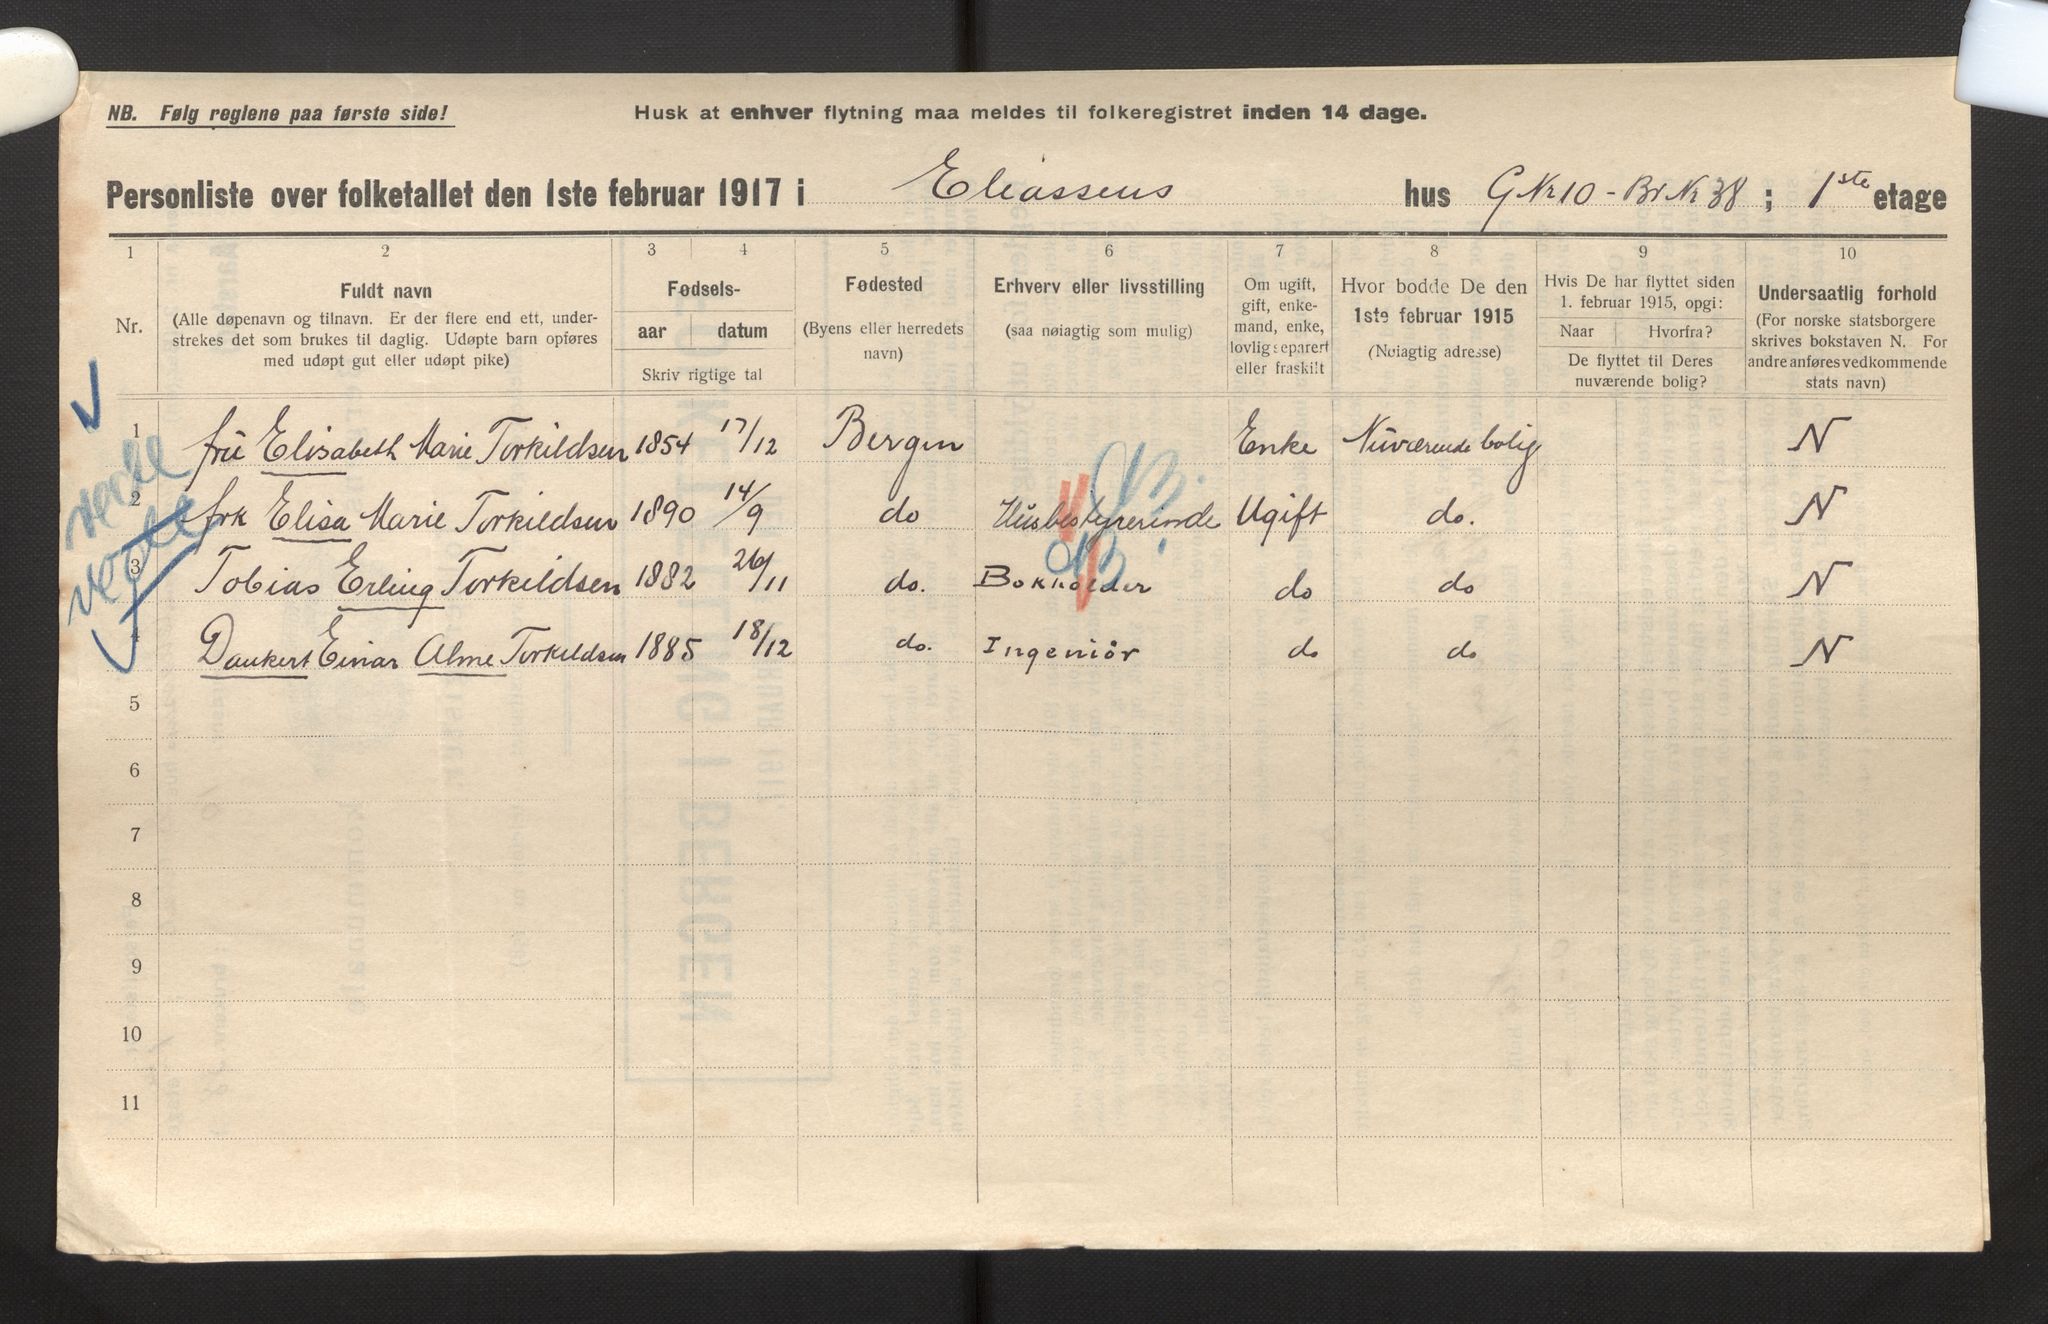 NB. Følg reglene paa første side!
Husk at enhver flytning maa meldes til folkeregistret inden 14 dage.
Personliste over folketallet den 1ste februar 1917 i Eliassens hus GNr 10 - BrNr 38 ; 1ste etage
1 2 3 4 5 6 7 8 9 10
Nr.
Fuldt navn
(Alle døpenavn og tilnavn. Er der flere end ett, under-
strekes det som brukes til daglig. Udøpte barn opføres
med udøpt gut eller udøpt pike)
Fødsels-
aar datum
Skriv rigtige tal
Fødested
(Byens eller herredets
navn)
Erhverv eller livsstilling
(saa nøiagtig som mulig)
Om ugift,
gift, enke-
mand, enke,
lovlig separert
eller fraskilt
Hvor bodde De den
1ste februar 1915
(Nøiagtig adresse)
Hvis De har flyttet siden
1. februar 1915, opgi:
Naar Hvorfra?
De flyttet til Deres
nuværende bolig?
Undersaatlig forhold
(For norske statsborgere
skrives bokstaven N. For
andre anføres vedkommende
stats navn)
1 frü Elisabeth Marie Torkildsen 1854 17/12 Bergen Enke Nüværende bolig N
2 frk Elisa Marie Torkildsen 1890 14/9 do Hüsbestyrerinde Ugift do. N
3 Tobias Erling Torkildsen 1882 26/11 do. Bokholder do do N
4 Dankert Einar Alme Torkildsen 1885 18/12 do. Ingeniör do do N
5
6
7
8
9
10
11